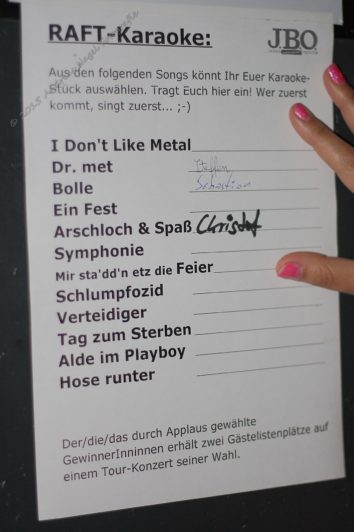 RAFT-Karaoke:
JBO
Aus den folgenden Songs könnt Ihr Euer Karaoke-
Stück auswählen. Tragt Euch hier ein! Wer zuerst
kommt, singt zuerst... ;-)
I Don't Like Metal
Dr. met Steffen
Bolle Sebastian
Ein Fest
Arschloch & Spaß Christof
Symphonie
Mir sta'dd'n etz die Feier
Schlumpfozid
Verteidiger
Tag zum Sterben
Alde im Playboy
Hose runter
Der/die/das durch Applaus gewählte
GewinnerInninnen erhält zwei Gästelistenplätze auf
einem Tour-Konzert seiner Wahl.